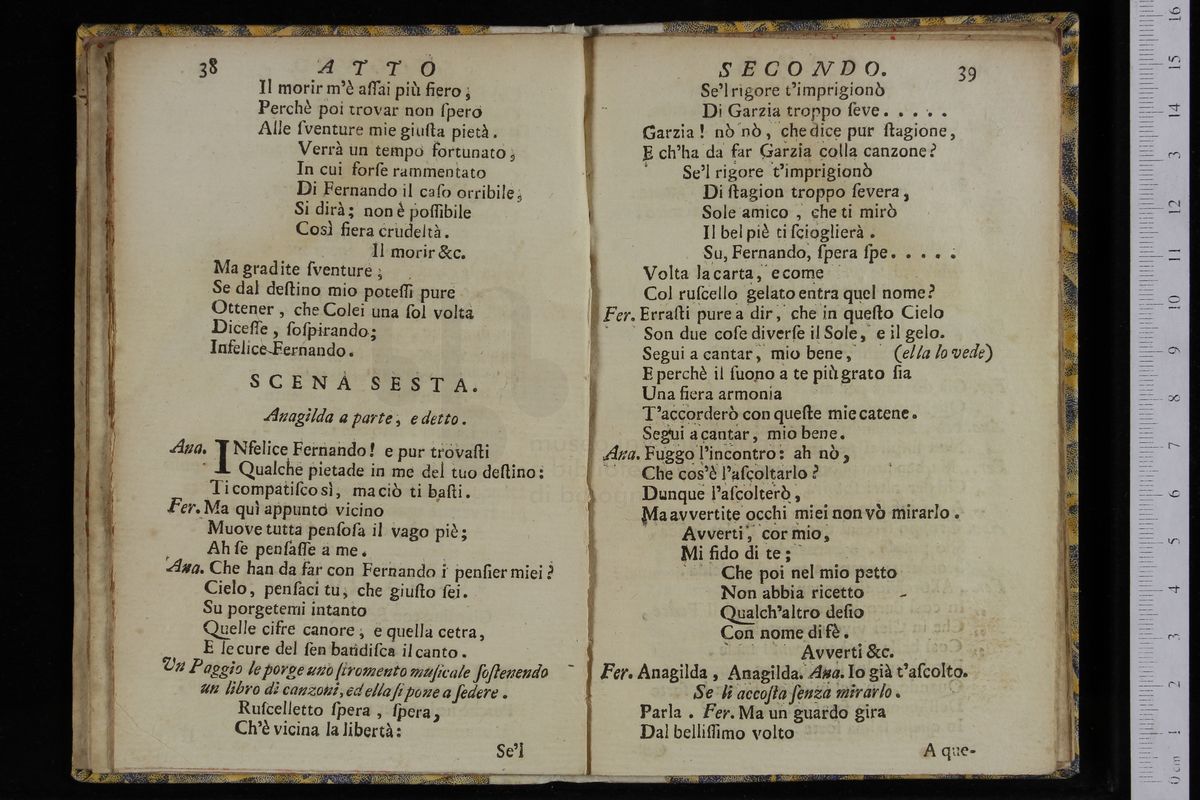 38 ATTO
Il morir m'è aſſai più fiero;
Perchè poi trovar non ſpero
Alle ſventure mie giuſta pietà.
Verrà un tempo fortunato,
In cui forſe rammentato
Di Fernando il caſo orribile,
Si dirà; non è poſſibile
Così fiera crudeltà.
Il morir &c.
Ma gradite ſventure;
Se dal deſtino mio poteſſi pure
Ottener, che Colei una ſol volta
Diceſſe, ſoſpirando;
Infelice Fernando.
SCENA SESTA.
Anagilda a parte, e detto.
Ana. INfelice Fernando! e pur trovaſti
Qualche pietade in me del tuo deſtino:
Ti compatiſco sì, ma ciò ti baſti.
Fer. Ma quì appunto vicino
Muove tutta penſoſa il vago piè;
Ah ſe penſaſſe a me.
Ana. Che han da far con Fernando i penſier miei?
Cielo, penſaci tu, che giuſto ſei.
Su porgetemi intanto
Quelle cifre canore, e quella cetra,
E le cure del ſen bandiſca il canto.
Un Paggio le porge uno ſtromento muſicale ſoſtenendo
un libro di canzoni, ed ella ſi pone a ſedere.
Ruſcelletto ſpera, ſpera,
Ch'è vicina la libertà:
Se'l
SECONDO. 39
Se'l rigore t'imprigionò
Di Garzia troppo ſeve.....
Garzia! nò nò, che dice pur ſtagione,
E ch'ha da far Garzia colla canzone?
Se'l rigore t'imprigionò
Di ſtagion troppo ſevera,
Sole amico, che ti mirò
Il bel piè ti ſcioglierà.
Su, Fernando, ſpera ſpe.....
Volta la carta, e come
Col ruſcello gelato entra quel nome?
Fer. Erraſti pure a dir, che in queſto Cielo
Son due coſe diverſe il Sole, e il gelo.
Segui a cantar, mio bene, (ella lo vede)
E perchè il ſuono a te più grato ſia
Una fiera armonia
T'accorderò con queſte mie catene.
Segui a cantar, mio bene.
Ana. Fuggo l'incontro: ah nò,
Che cos'è l'aſcoltarlo?
Dunque l'aſcolterò,
Ma avvertite occhi miei non vò mirarlo.
Avverti, cor mio,
Mi fido di te;
Che poi nel mio petto
Non abbia ricetto
Qualch'altro deſio
Con nome di fè.
Avverti &c.
Fer. Anagilda, Anagilda. Ana. Io già t'aſcolto.
Se li accoſta ſenza mirarlo.
Parla. Fer. Ma un guardo gira
Dal belliſſimo volto
A que-
0 cm 1 2 3 4 5 6 7 8 9 10 11 12 13 14 15 16